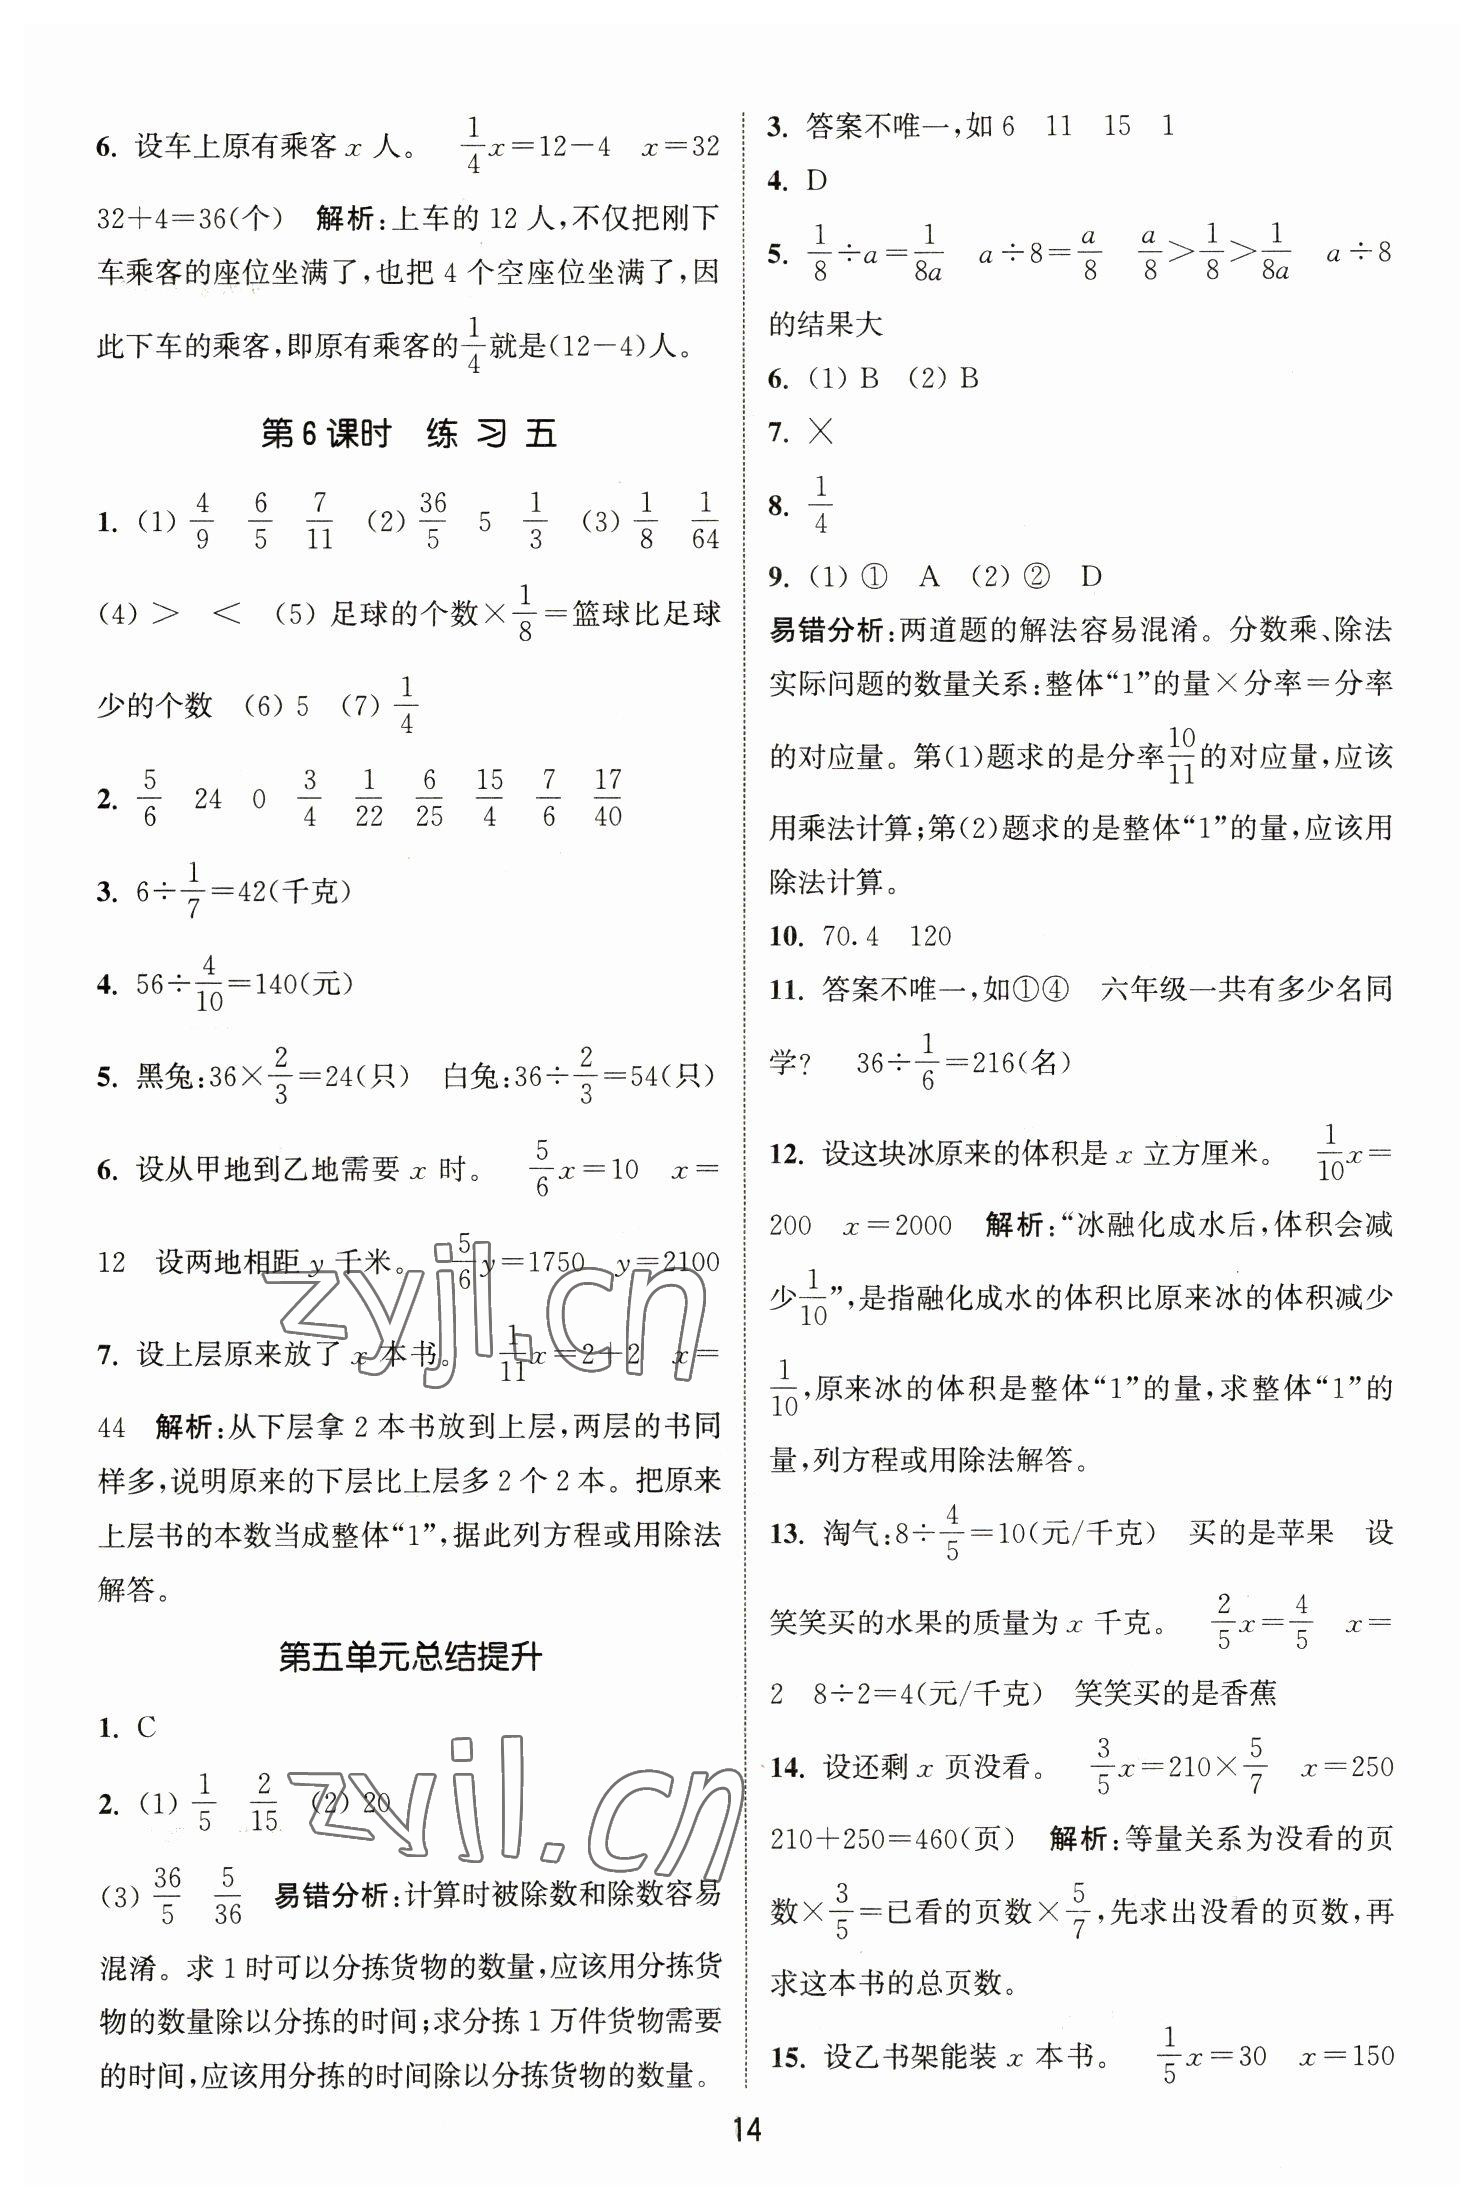 6. 设车上原有乘客 x 人。 1/4x=12-4 x=32
32+4=36(个) 解析:上车的 12 人,不仅把刚下
车乘客的座位坐满了,也把 4 个空座位坐满了,因
此下车的乘客,即原有乘客的1/4就是(12-4)人。
第 6 课时 练 习 五
1. (1) 4/9 6/5 7/11 (2) 36/5 5 1/3 (3) 1/8 1/64
(4) > < (5) 足球的个数×1/8=篮球比足球
少的个数 (6) 5 (7) 1/4
2. 5/6 24 0 3/4 1/22 6/25 15/4 7/6 17/40
3. 6÷1/7=42(千克)
4. 56÷4/10=140(元)
5. 黑兔:36×2/3=24(只) 白兔:36÷2/3=54(只)
6. 设从甲地到乙地需要 x 时。 5/6x=10 x=
12 设两地相距 y 千米。 5/6y=1750 y=2100
7. 设上层原来放了 x 本书。 1/11x=2+2 x=
44 解析:从下层拿 2 本书放到上层,两层的书同
样多,说明原来的下层比上层多 2 个 2 本。把原来
上层书的本数当成整体“1”,据此列方程或用除法
解答。
第五单元总结提升
1. C
2. (1) 1/5 2/15 (2) 20
(3) 36/5 5/36 易错分析:计算时被除数和除数容易
混淆。求 1 时可以分拣货物的数量,应该用分拣货
物的数量除以分拣的时间;求分拣 1 万件货物需要
的时间,应该用分拣的时间除以分拣货物的数量。
3. 答案不唯一,如 6 11 15 1
4. D
5. 1/8÷a=1/8a a÷8=a/8 a/8>1/8>1/8a a÷8
的结果大
6. (1) B (2) B
7. ×
8. 1/4
9. (1) ① A (2) ② D
易错分析:两道题的解法容易混淆。分数乘、除法
实际问题的数量关系:整体“1”的量×分率=分率
的对应量。第(1)题求的是分率10/11的对应量,应该
用乘法计算;第(2)题求的是整体“1”的量,应该用
除法计算。
10. 70.4 120
11. 答案不唯一,如①④ 六年级一共有多少名同
学? 36÷1/6=216(名)
12. 设这块冰原来的体积是 x 立方厘米。 1/10x=
200 x=2000 解析:“冰融化成水后,体积会减
少1/10”,是指融化成水的体积比原来冰的体积减少
1/10,原来冰的体积是整体“1”的量,求整体“1”的
量,列方程或用除法解答。
13. 淘气:8÷4/5=10(元/千克) 买的是苹果 设
笑笑买的水果的质量为 x 千克。 2/5x=4/5 x=
2 8÷2=4(元/千克) 笑笑买的是香蕉
14. 设还剩 x 页没看。 3/5x=210×5/7 x=250
210+250=460(页) 解析:等量关系为没看的页
数×3/5=已看的页数×5/7,先求出没看的页数,再
求这本书的总页数。
15. 设乙书架能装 x 本书。 1/5x=30 x=150
14
zyjl.cn
zyjl.cn